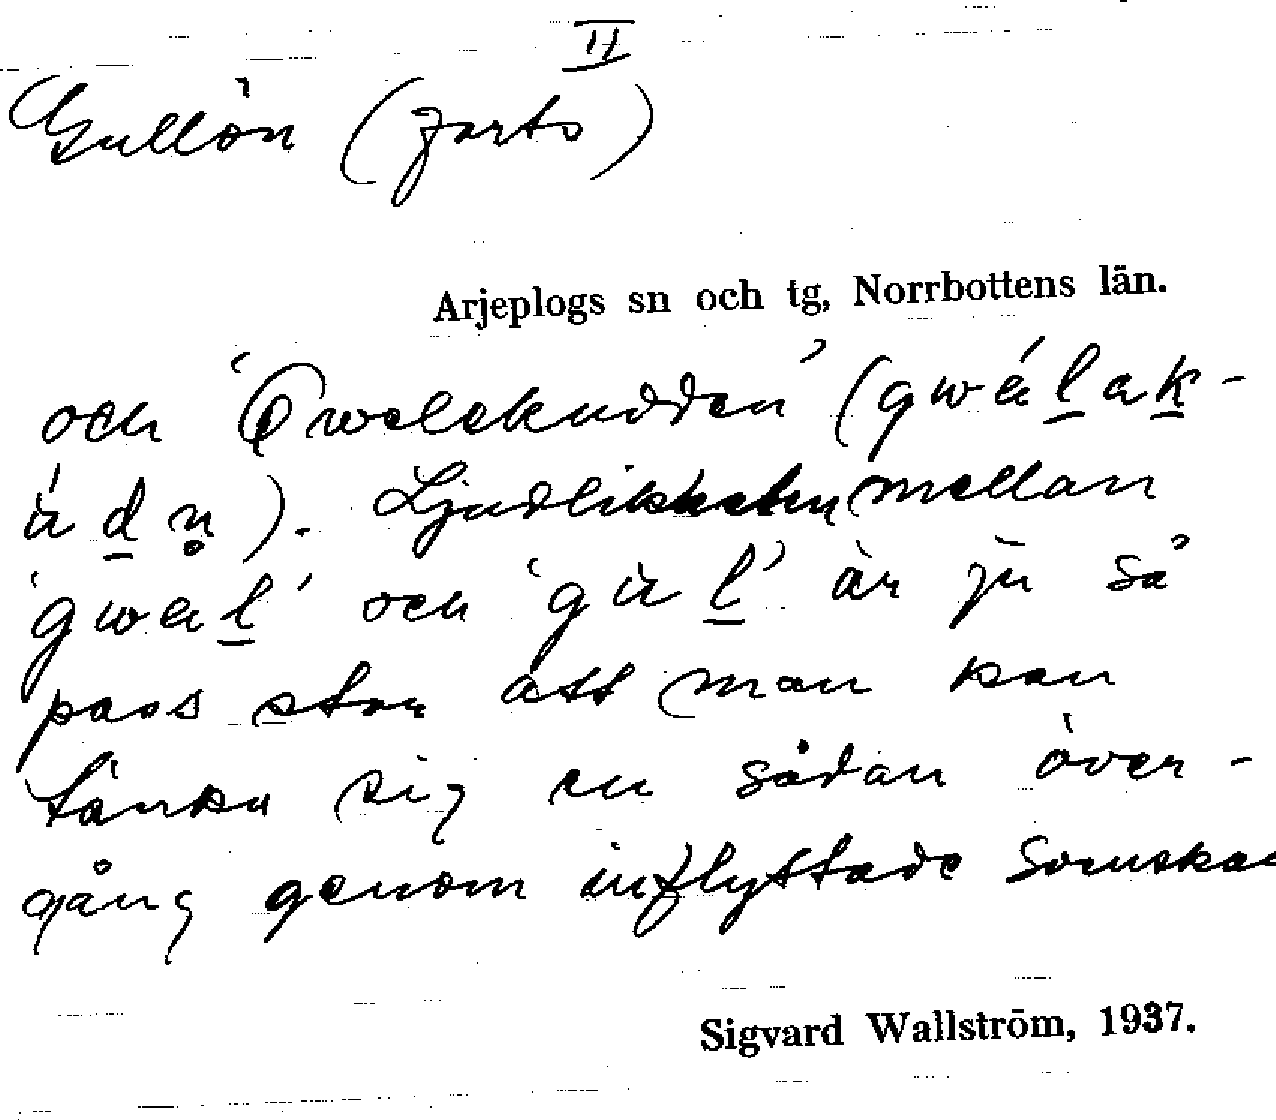 II
Gullön (forts)
Arjeplogs sn och tg, Norrbottens län.
och 'Qwelekudden' (gwȧ́l̲ak̲-
ù̀d̲n̥). Ljudlikheten mellan
'gwal̲' och 'gùl̲' är ju så
pass stor att man kan
tänka sig en sådan över-
gång genom inflyttade svenskar
Sigvard Wallström, 1937.